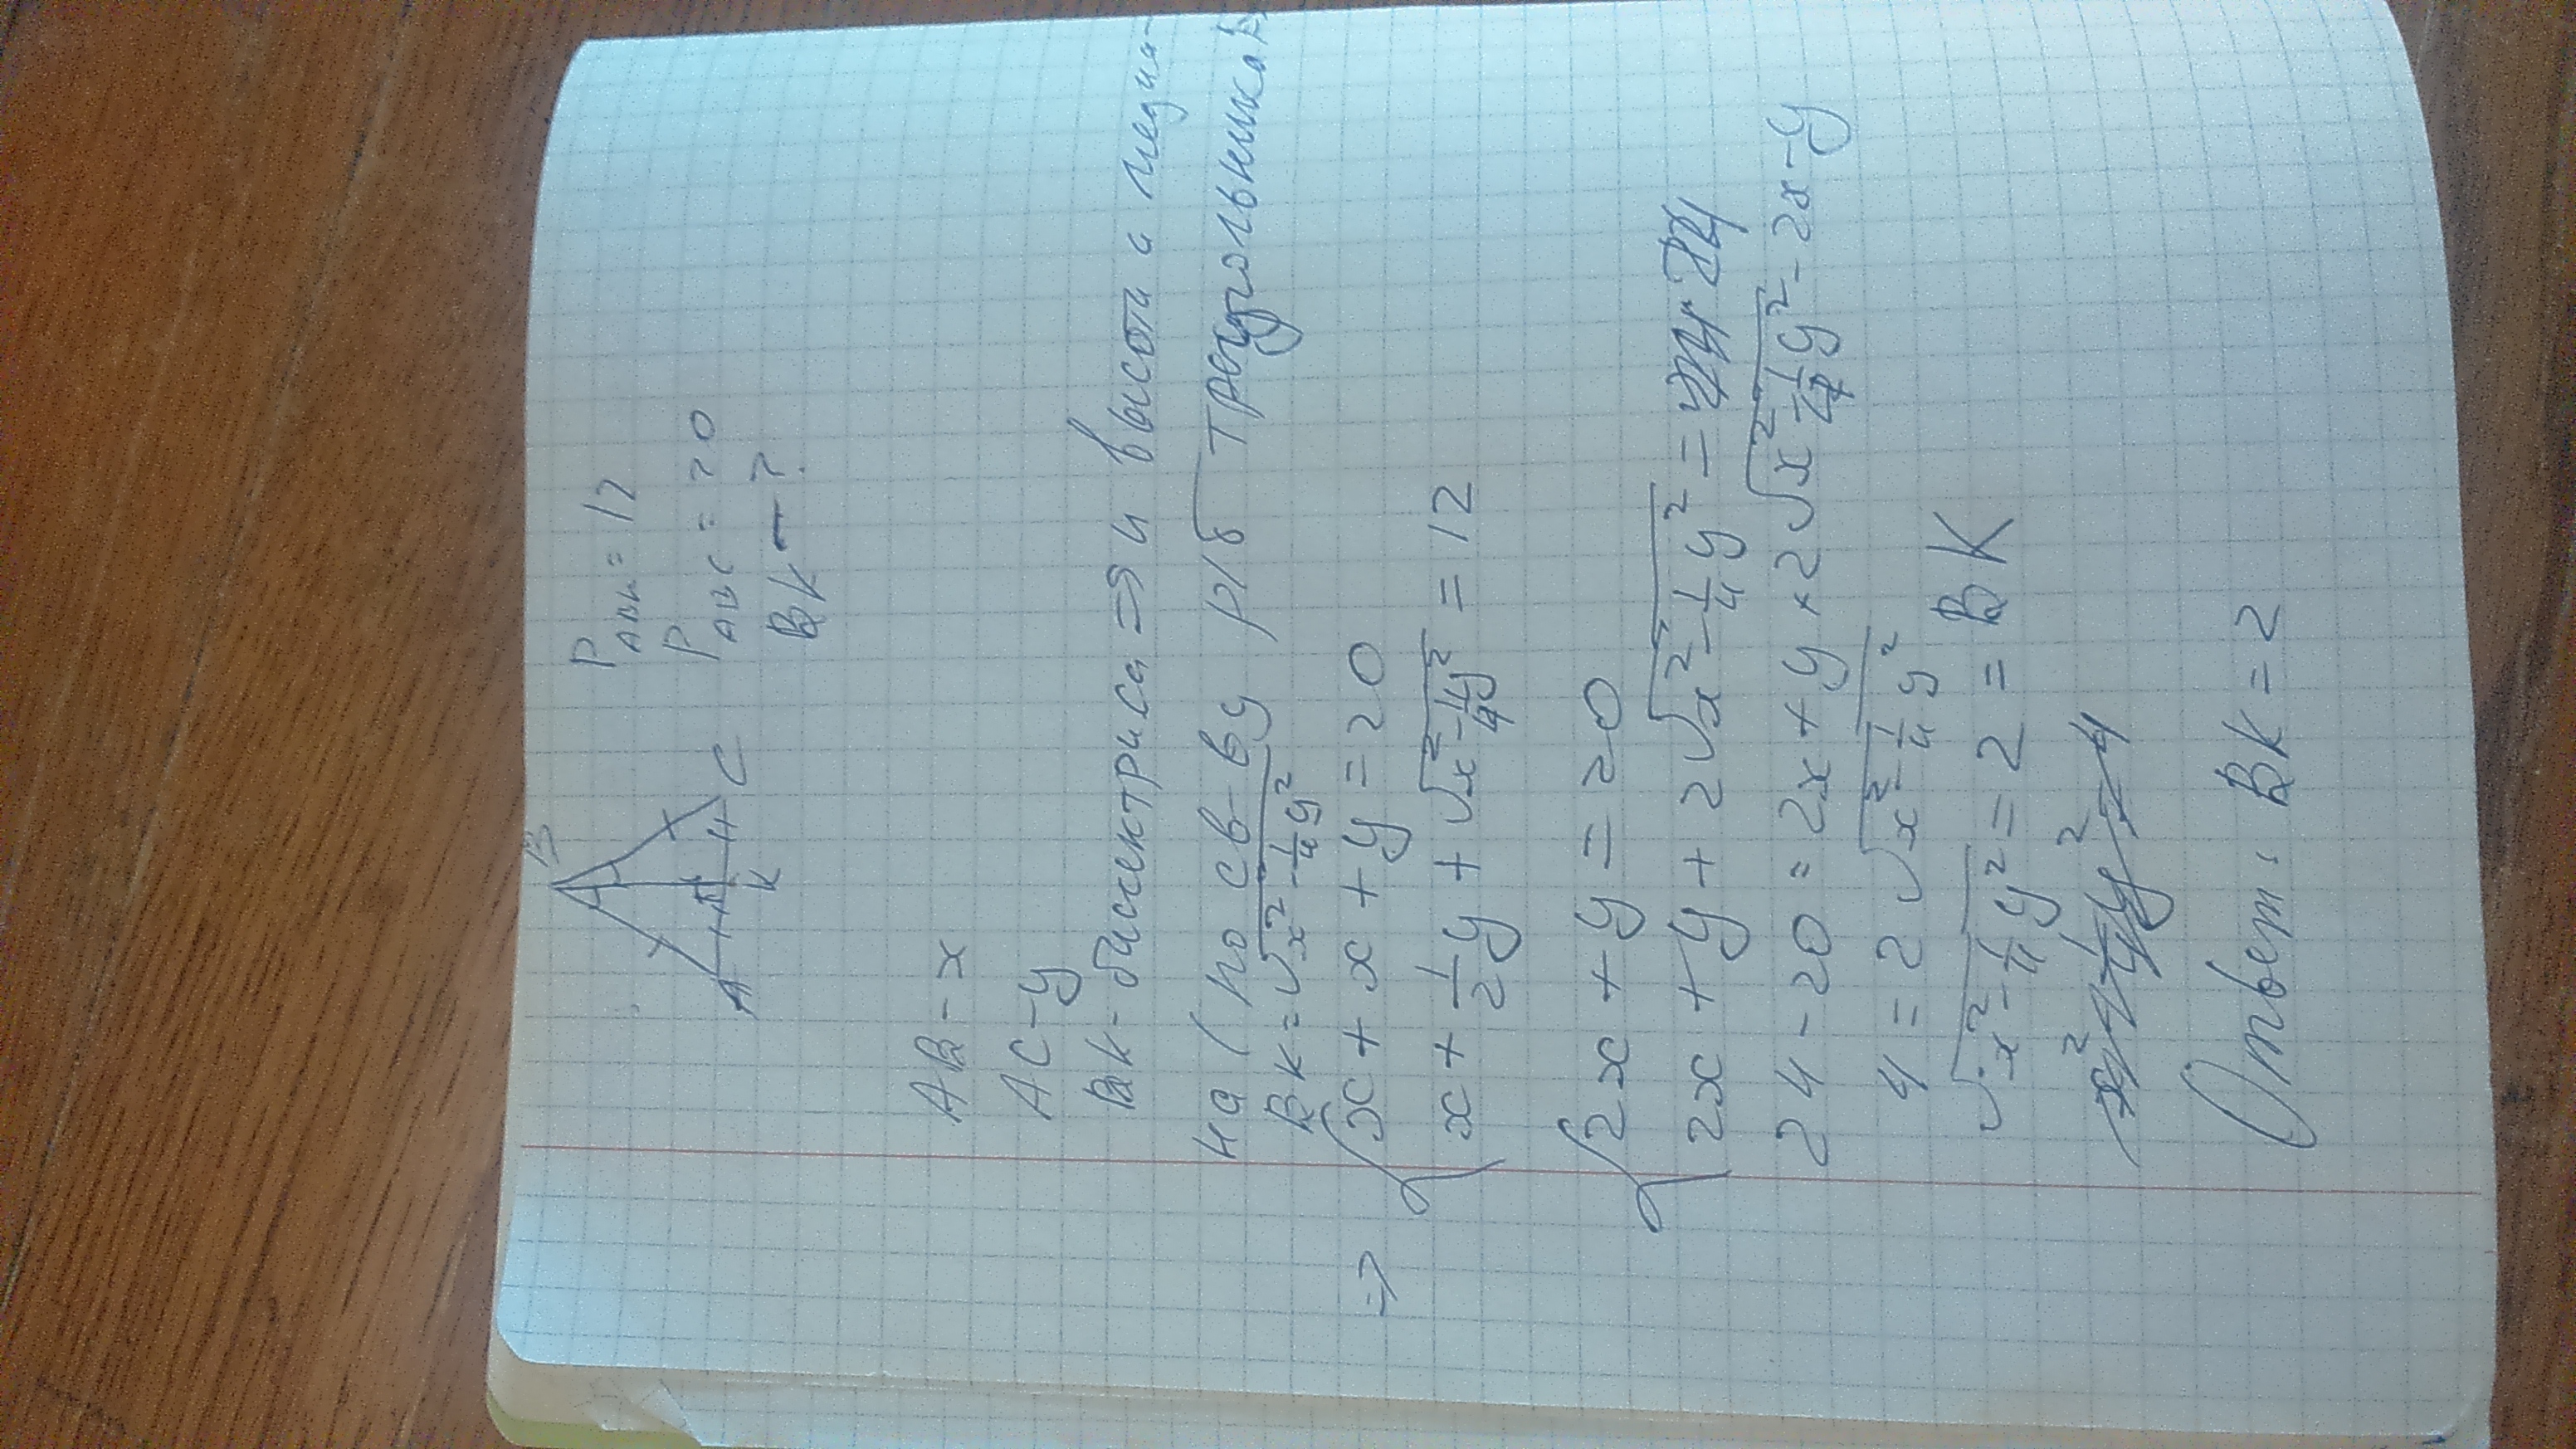 B
A
K
C
P ABK = 12
P ABC = 20
BK — ?
AB - x
AC - y
BK - биссектриса => и высота и медиа-
на (по св-ву р/б треугольника)
BK = √(x² - 1/4 y²)
=> { x + x + y = 20
x + 1/2 y + √(x² - 1/4 y²) = 12
{ 2x + y = 20
2x + y + 2√(x² - 1/4 y²) =
24 - 20 = 2x + y + 2√(x² - 1/4 y²) - 2x - y
4 = 2√(x² - 1/4 y²)
√(x² - 1/4 y²) = 2 = BK
Ответ: BK = 2